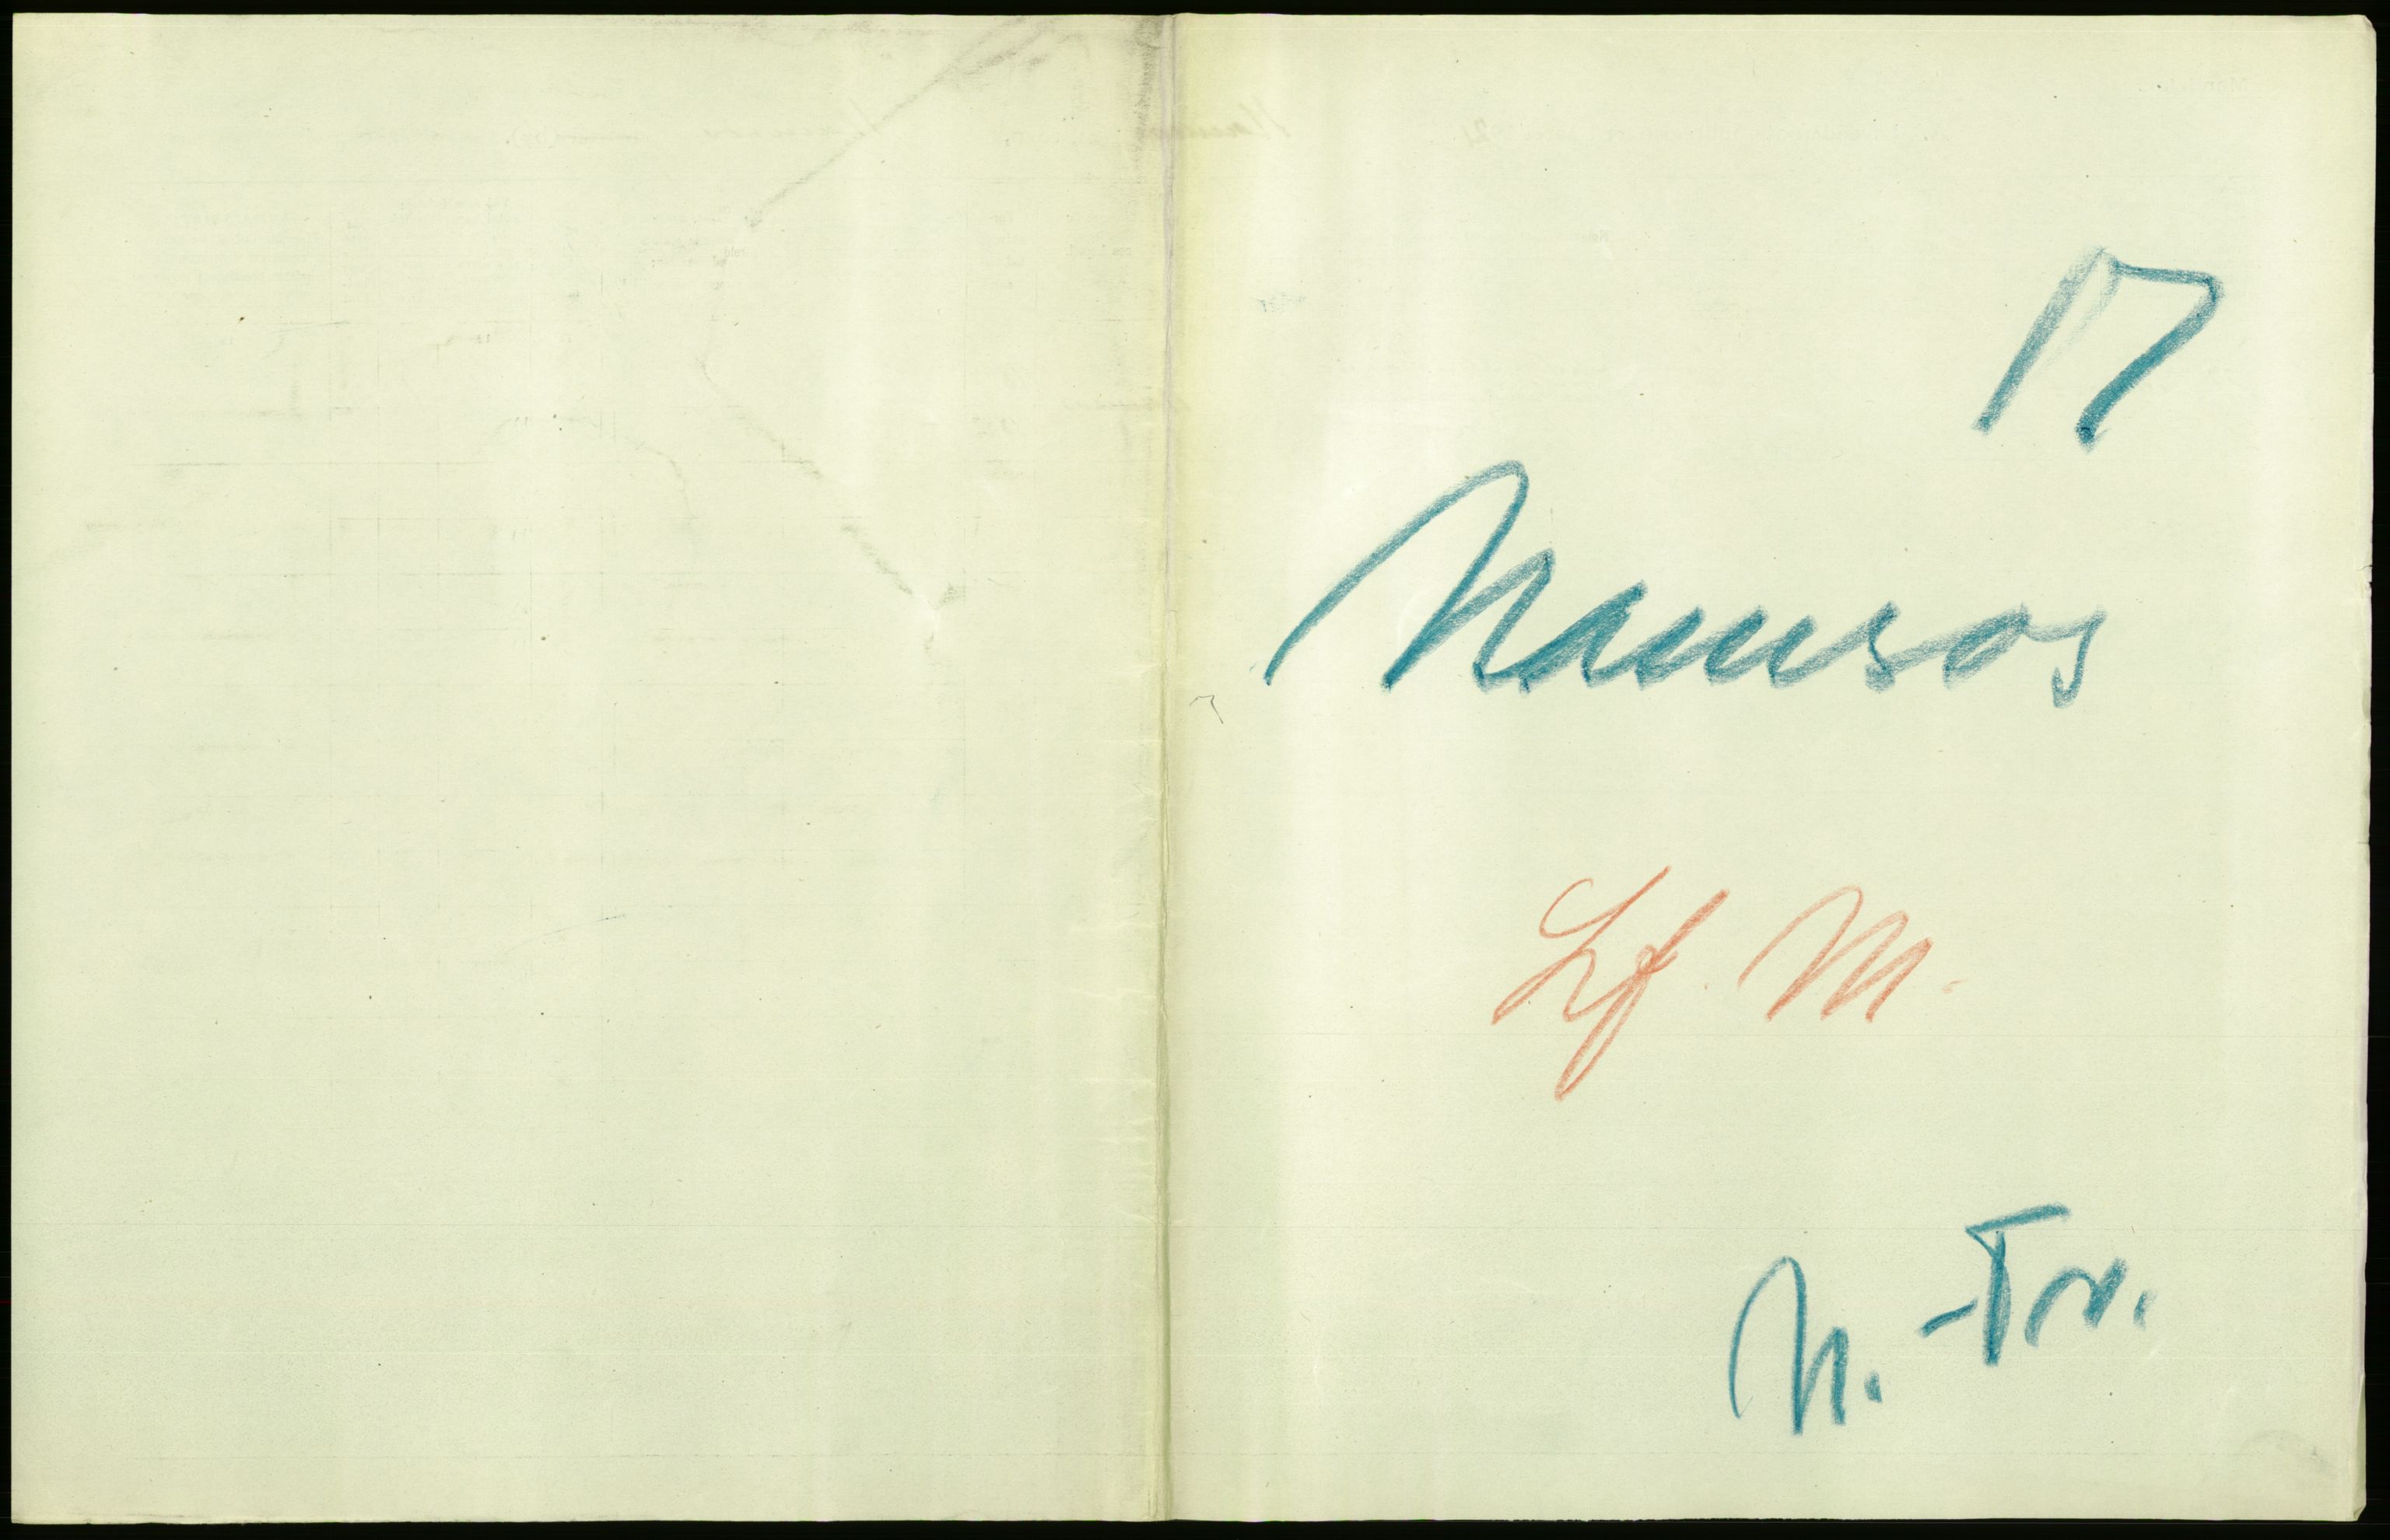 17
Namsos
Lf. M.
N.-Tr.